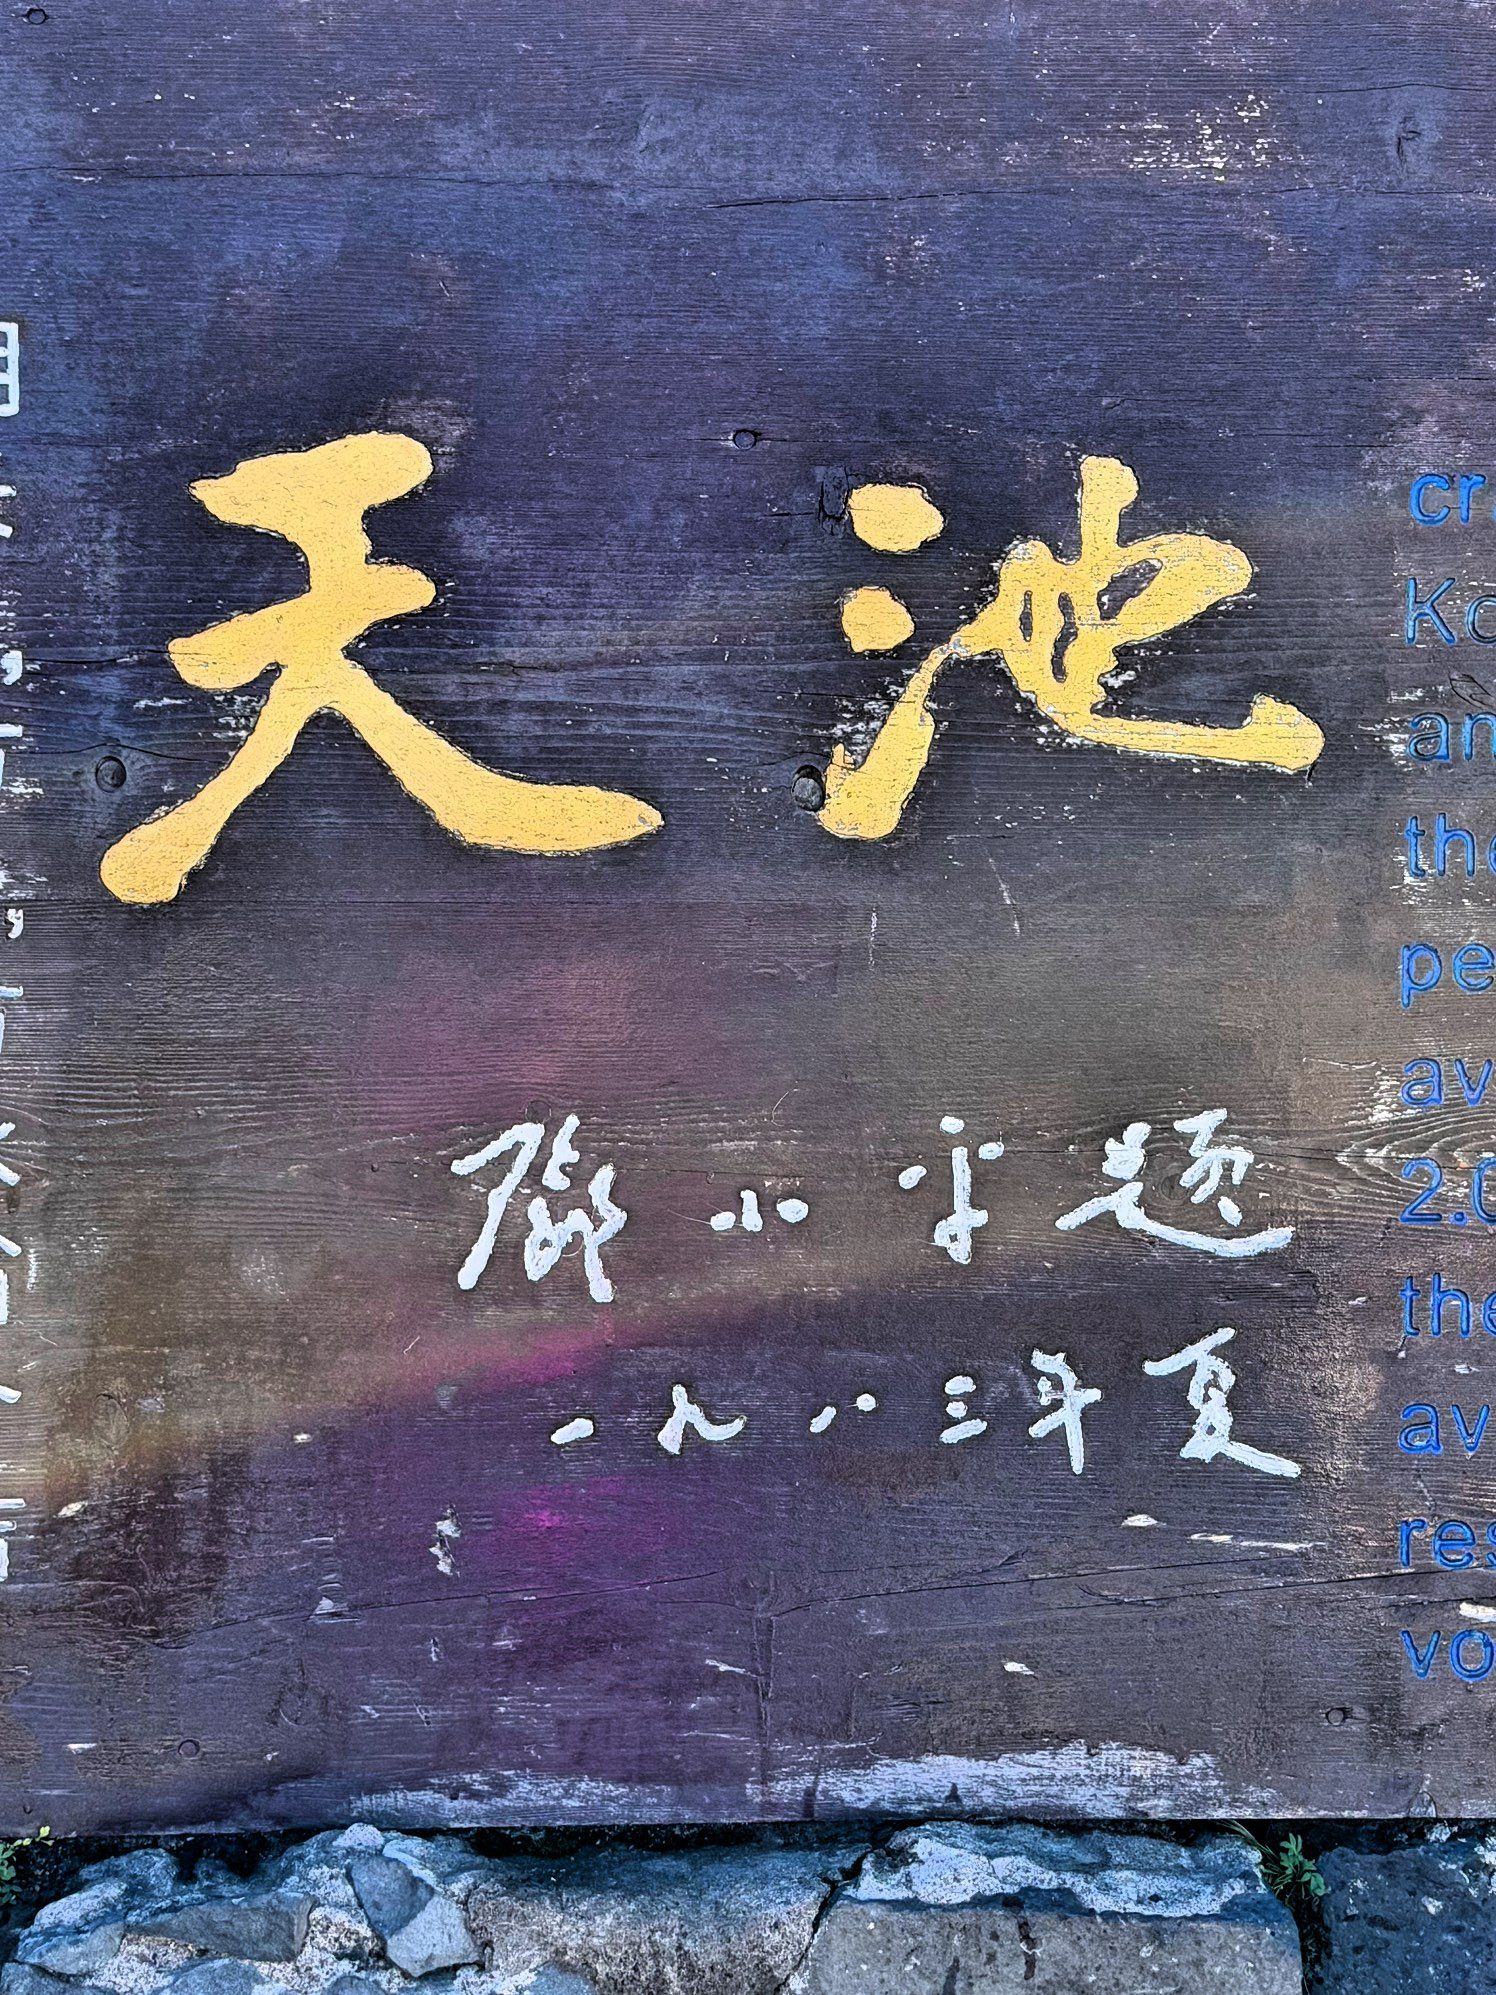 天池
鄧小平題
一九八三年夏
cr
Ko
an
the
pe
av
2.0
the
av
res
vo